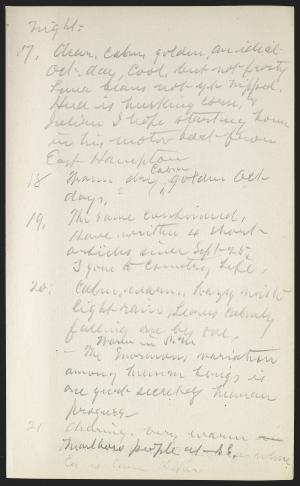 night.
17. Clear, calm, golden, an ideal
Oct. day, Cool, but not frosty
Lima beans not yet nipped.
Hud is husking corn, &
Julian I hope starting home
in his motor boat from
East Hampton
18 Warm day, Calm golden Oct
days.
19. The same continued,
Have written 4 short
articles since Sept 25,
3 gone to Country Life,
20. Calm, warm, hazy with
light rain, Leaves calmly
falling one by one,
Warm in P.M.
– The Enormous variation
among human beings is
one great secret of human
progress –
21 Clearing, very warm –
Marlboro people at S.S.